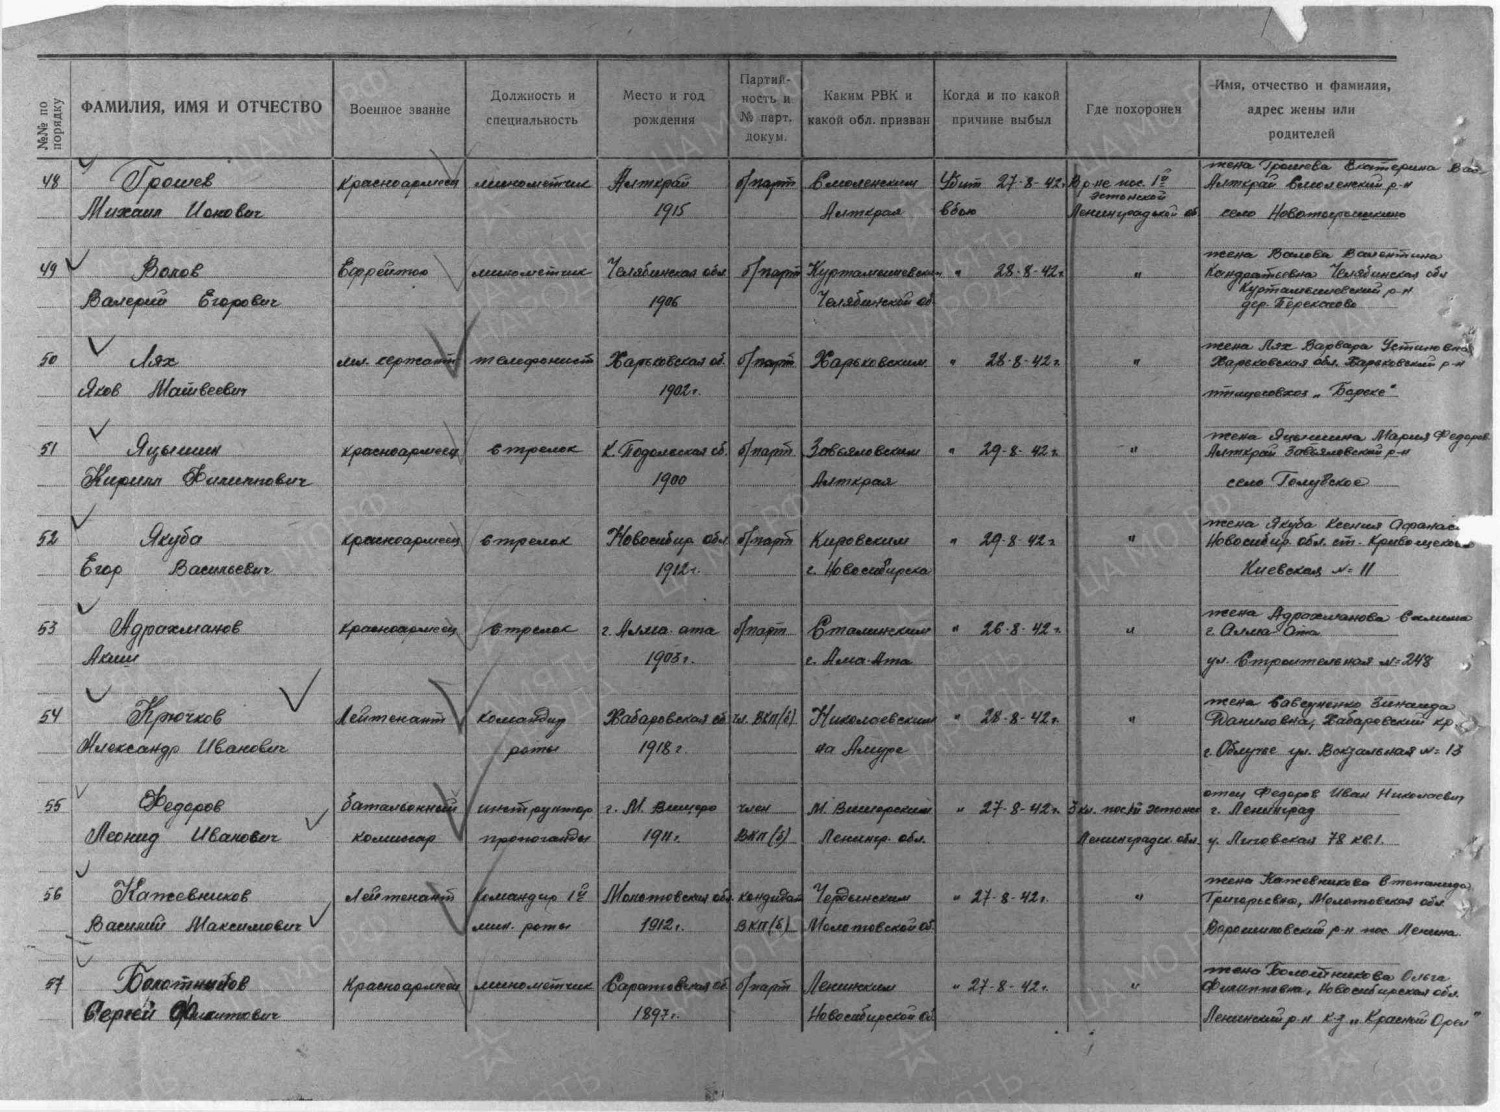 №№ по порядку
ФАМИЛИЯ, ИМЯ И ОТЧЕСТВО
Военное звание
Должность и специальность
Место и год рождения
Партий-ность и № парт. докум.
Каким РВК и какой обл. призван
Когда и по какой причине выбыл
Где похоронен
Имя, отчество и фамилия, адрес жены или родителей
48 Грошев красноармеец минометчик Алткрай б/парт Смоленским Убит 27-8-42г. В р-не пос. 1й Эстонской жена Грошева Екатерина
Михаил Ионович 1915 Алткрая в бою Ленинградской об. Алткрай Смоленский р-н
село
49 Волов Ефрейтор минометчик Челябинская обл б/парт Куртамышевским " 28-8-42г. " жена Валова Валентина
Валерий Егорович 1906 Челябинской об. Кондратьевна Челябинская обл
Куртамышевский р-н
дер.
50 Лях мл. сержант телефонист Харьковская об. б/парт Харьковским " 28-8-42г. " жена Лях Варвара Устиновна
Яков Матвеевич 1902г. Харьковская обл. р-н
птицесовхоз "Борки"
51 Яцышин красноармеец стрелок К. Подольская об. б/парт Завьяловским " 29-8-42г. " жена Яцышина Мария Федоров
Кирилл Филиппович 1900 Алткрая Алткрай Завьяловский р-н
село Голубское
52 Якуба красноармеец стрелок Новосибир. обл б/парт Кировским " 29-8-42г. " жена Якуба Ксения Афанас
Егор Васильевич 1912г. г. Новосибирска Новосибир. обл. ст. Кривощеково
Киевская №11
53 Адрахманов красноармеец стрелок г. Алма-ата б/парт Сталинским " 26-8-42г. " жена Адрахманова
Аким 1903г. г. Ама-Ата г. Алма-Ата
ул. Строительная №248
54 Крючков Лейтенант командир Хабаровская об чл. ВКП(б) Николаевским " 28-8-42г. " жена Савсуненко Зинаида
Александр Иванович роты 1918г. на Амуре Даниловна, Хабаровский кр.
г. Облучье ул. Вокзальная №13
55 Федоров батальонный инструктор г. М. Вишера член М. Вишерским " 27-8-42г. 3 кл. пос. 1й эстонск отец Федоров Иван Николаевич
Леонид Иванович комиссар пропоганды 1911г. ВКП(б) Ленингр. обл. Ленинградск. обл. г. Ленинград
у. Лиговская 78 кв.1.
56 Кажевников Лейтенант командир 1й Молотовская об. кандидат Чердынским " 27-8-42г. " жена Кажевникова Степанида
Василий Максимович мин. роты 1912г. ВКП(б) Молотовской об. Григорьевна, Молотовская обл
Ворошиловский р-н пос. Ленина.
57 Болотников Красноармеец минометчик Саратовская об. б/парт Ленинским " 27-8-42г. " жена Болотникова Ольга
Сергей 1897г. Новосибирской об. Филипповна, Новосибирская обл.
Ленинский р-н к-з "Красный Орел"